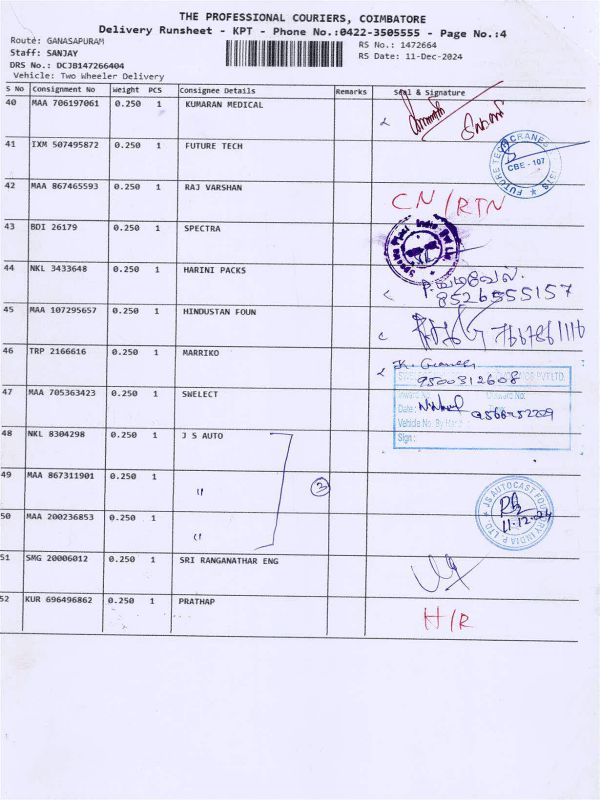 THE PROFESSIONAL COURIERS, COIMBATORE
Delivery Runsheet - KPT - Phone No.:0422-3505555 - Page No.:4
Route: GANASAPURAM
RS No.: 1472664
Staff: SANJAY
RS Date: 11-Dec-2024
DRS No.: DCJB147266404
Vehicle: Two Wheeler Delivery
S No Consignment No Weight PCS Consignee Details Remarks Seal & Signature
40 MAA 706197061 0.250 1 KUMARAN MEDICAL
41 IXM 507495872 0.250 1 FUTURE TECH
FUTURE TECH CRANES
CBE - 107
42 MAA 867465593 0.250 1 RAJ VARSHAN CN/RTN
43 BDI 26179 0.250 1 SPECTRA
44 NKL 3433648 0.250 1 HARINI PACKS
8526555157
45 MAA 107295657 0.250 1 HINDUSTAN FOUN
46 TRP 2166616 0.250 1 MARRIKO
9500312608
47 MAA 705363423 0.250 1 SWELECT
Date:
Vehicle No.
Sign:
48 NKL 8304298 0.250 1 J S AUTO
49 MAA 867311901 0.250 1 " 3
50 MAA 200236853 0.250 1 "
JS AUTOCAST FOUNDRY INDIA P LTD.
11.12.024
51 SMG 20006012 0.250 1 SRI RANGANATHAR ENG
52 KUR 696496862 0.250 1 PRATHAP H/R